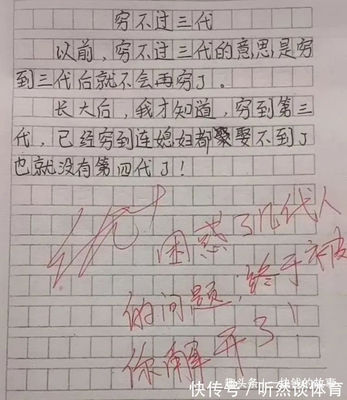 穷不过三代
以前,穷不过三代的意思是穷
到三代后就不会再穷了。
长大后,我才知道,穷到第三
代,已经穷到连媳妇都娶不到了
也就没有第四代了!
优+
困惑了几代人
的问题,终于被
你解开了!
快传号/听然谈体育